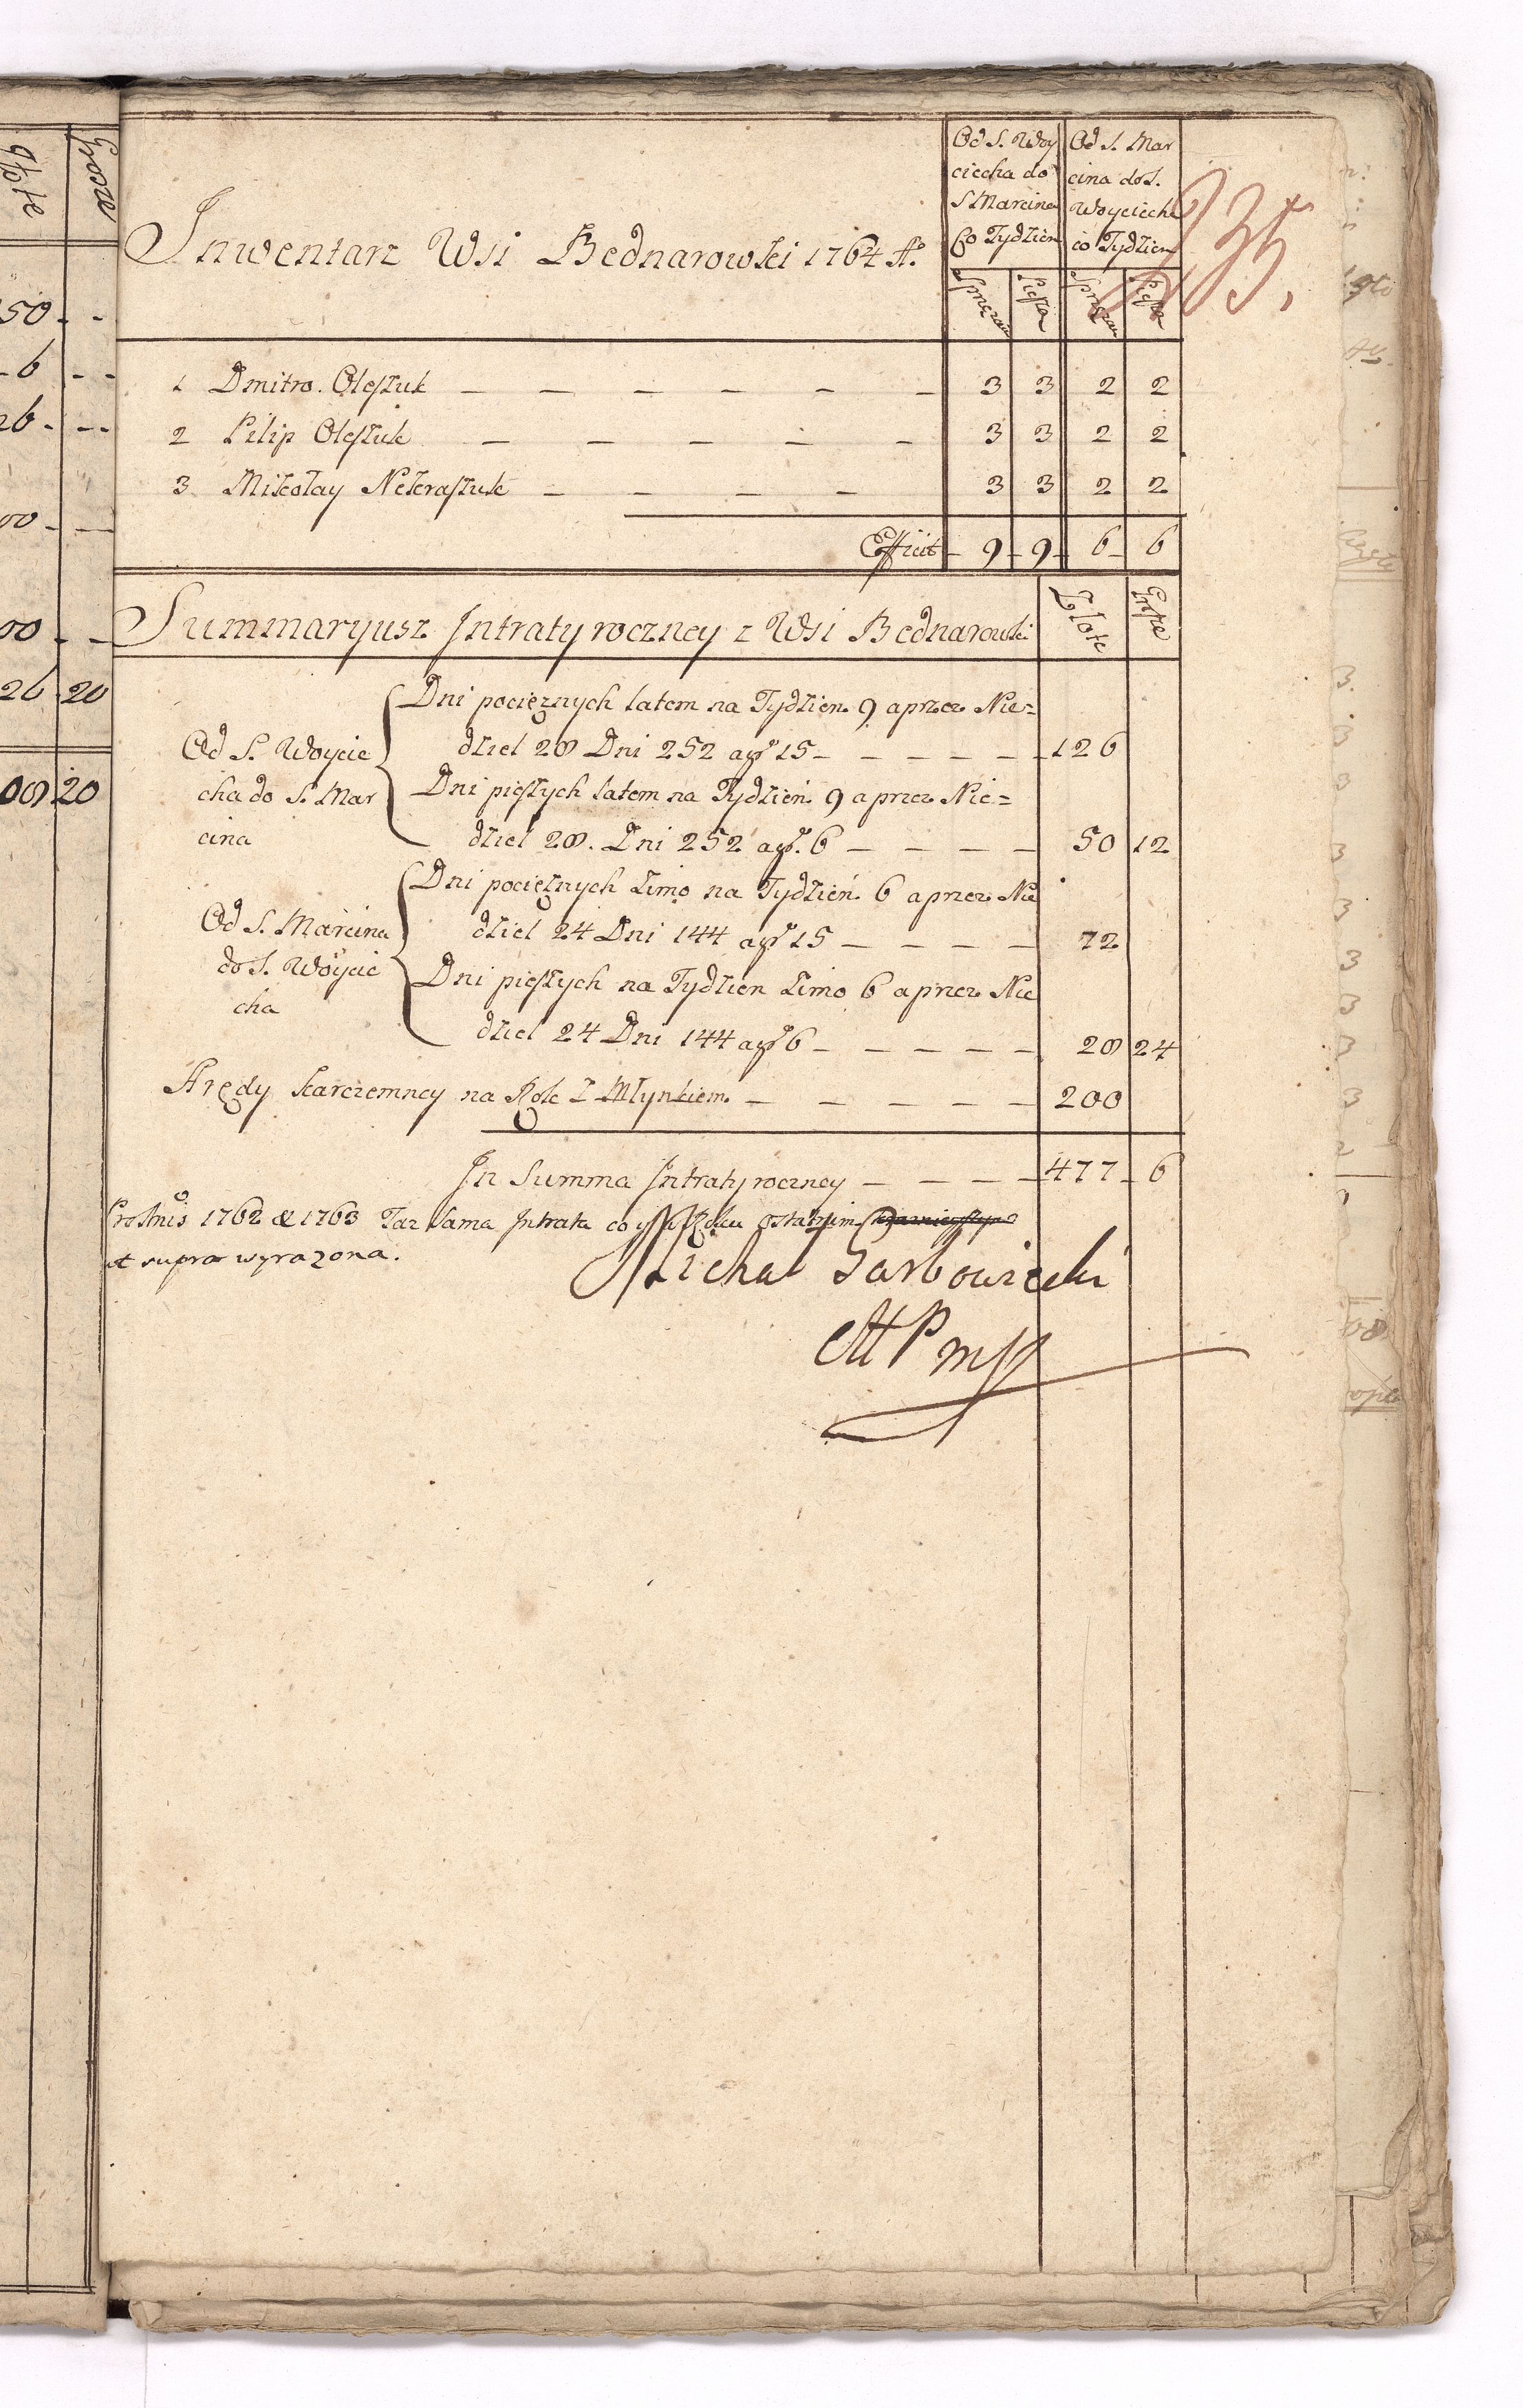 Złote
Grosze
50 - -
- 6 - -
26 - - -
00 - -
00 - -
26 20
00 20
Od S. Woy
ciecha do
S Marcina
Co Tydzien
Od S. Mar
cina do S.
Woyciecha
co Tydzien
235.
Inwentarz Wsi Bednarowki 1764 Ao
Sprzęzaiu Piesze Sprzęzaiu Piesze
1 Dmitro Oleszuk — — — — — — 3 3 2 2
2 Pilip Oleszuk — — — — — 3 3 2 2
3 Mikołay Nekraszuk — — — — 3 3 2 2
Efficit - 9 - 9 - 6 - 6
Summaryusz Intraty roczney z Wsi Bednarowki Złote Grosze
Dni pociężnych latem na Tydzien 9 a przez Nie=
Od S. Woycie dziel 28 Dni 252 a gr 15 - — — — — 126
cha do S. Mar Dni pieszych latem na Tydzień 9 a przez Nie=
cina dziel 28. Dni 252 a gr. 6 — — — — 50 12
Dni pociężnych Zimo na Tydzień 6 a przez Nie
Od S. Marcina dziel 24 Dni 144 a gr 15 — — — — 72
do S. Woycie Dni pieszych na Tydzien Zimo 6 a przez Nie
cha dziel 24 Dni 144 a gr 6 - — — — — 28 24
Arędy karczemney na Rok z Młynkiem — — — — — 200
In Summa Intraty roczney — — — — 477 - 6
Pro Annis 1762 & 1763 Taz Sama Intrata co y w Roku ostatnim
ut supra wyrazona.
Michał Garbowiecki
mp